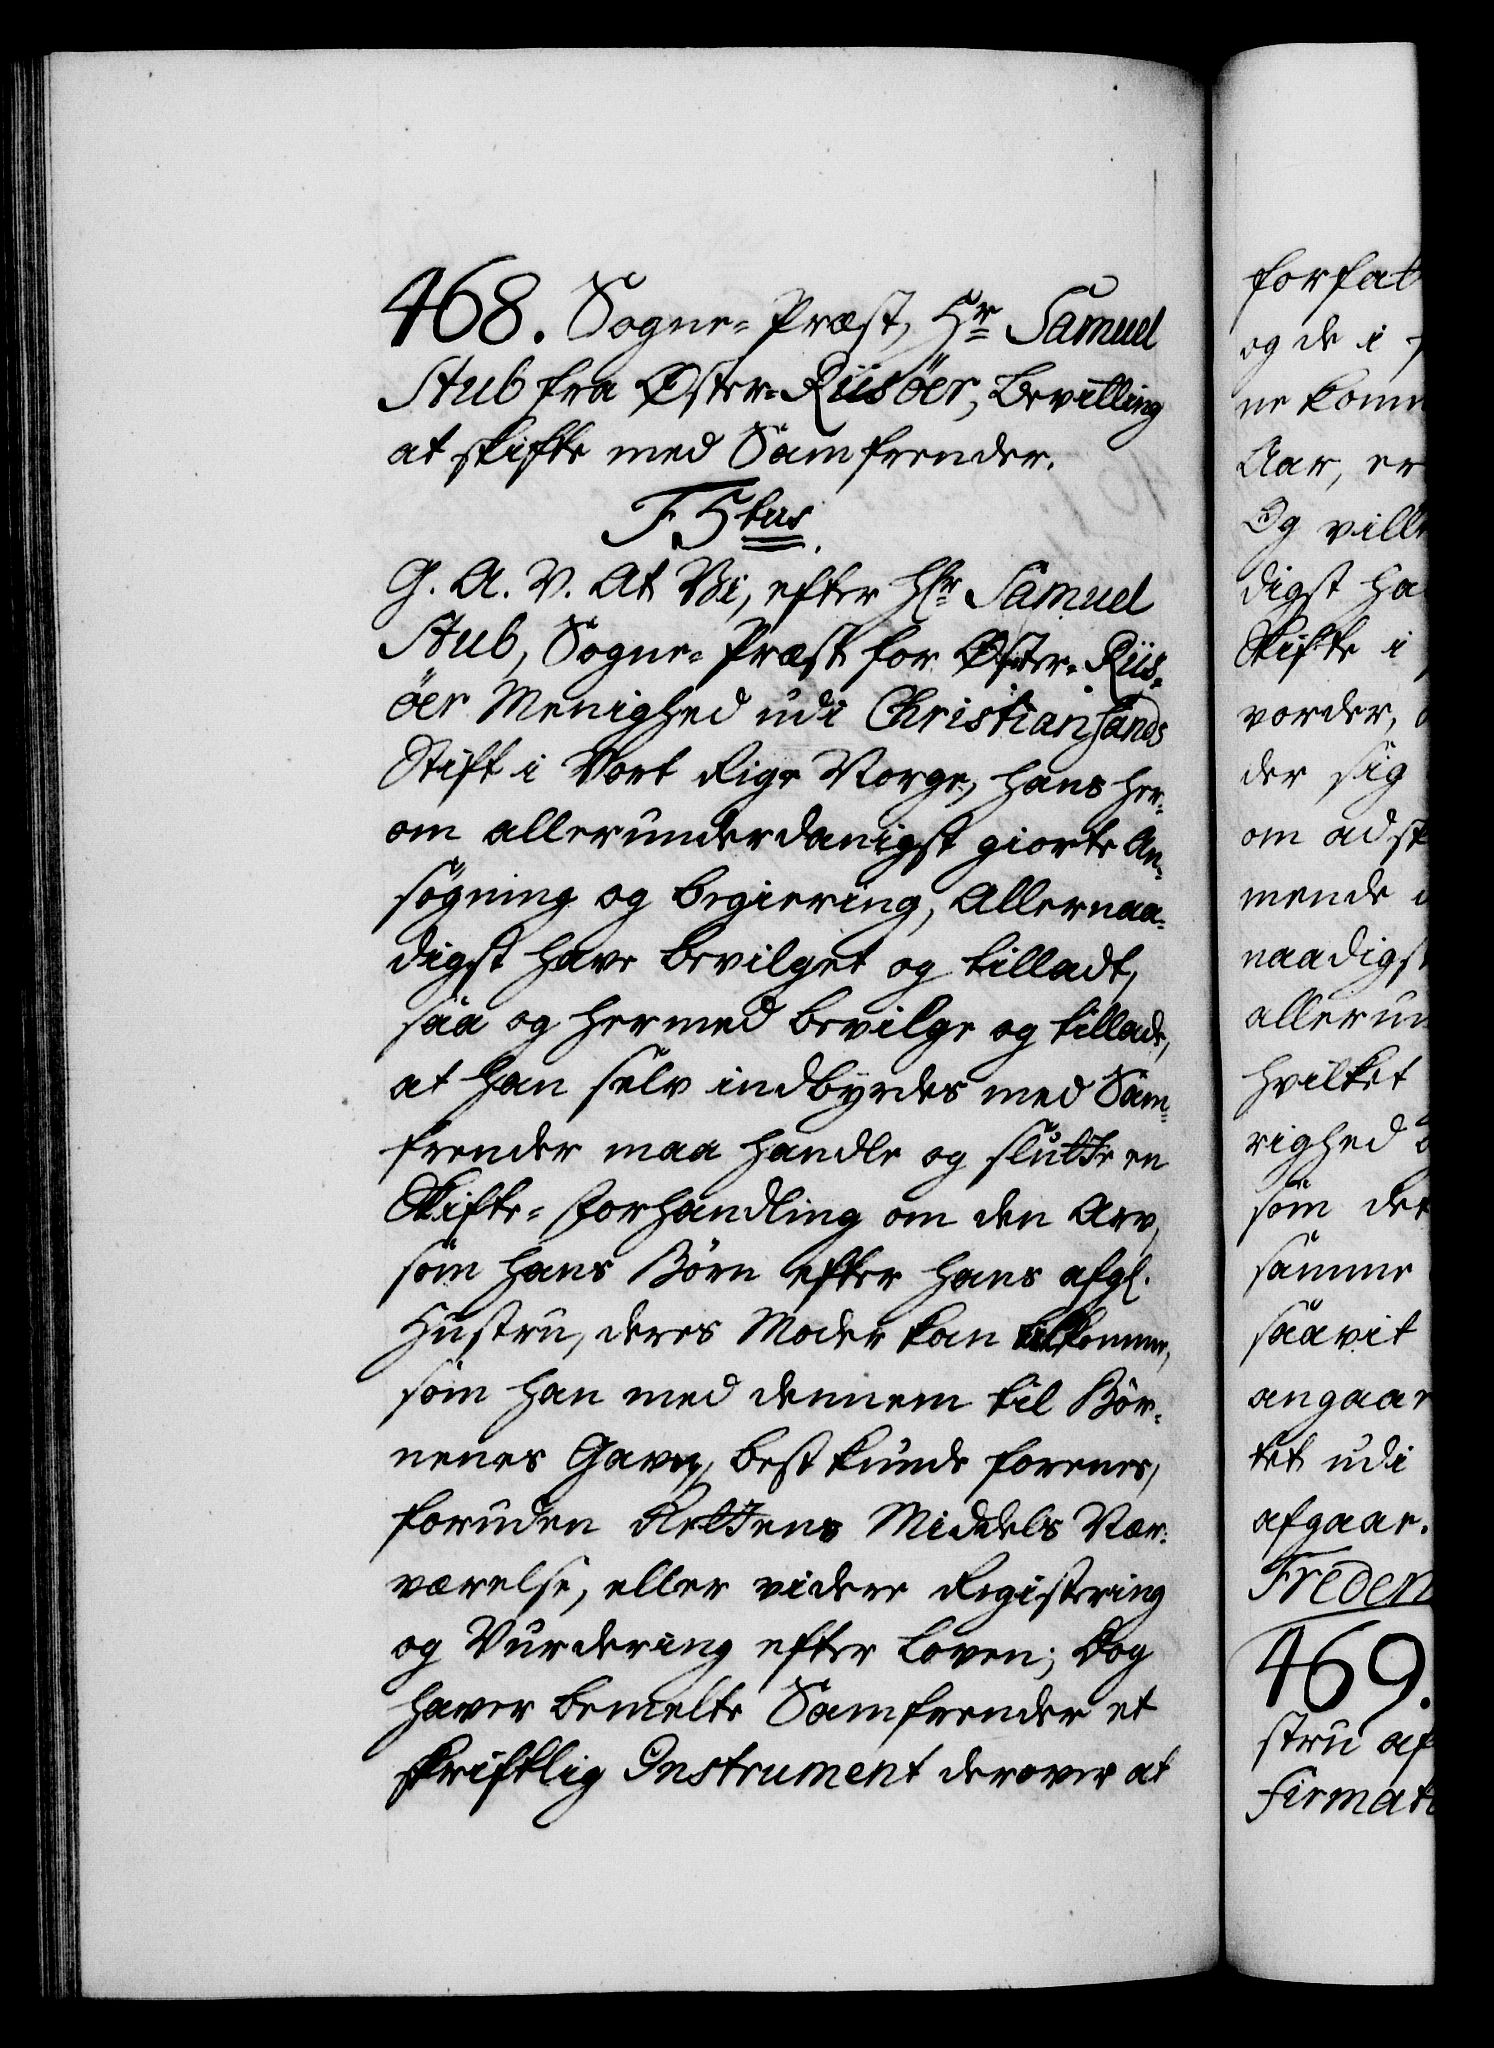 468. Sogne-Præst, Hr Samuel
Stub fra Øster-Riisöer, Bevilling
at skifte med Samfrender.
F. 5tus.
G. A. V. At Vi, efter Hr Samuel
Stub, Sogne-Præst for Øster-Riis-
öer Menighed udi Christiansands
Stift i Vort Rige Norge, hans her-
om allerunderdanigst giorte An-
søgning og begiering, Allernaa-
digst have bevilget og tilladt,
saa og hermed bevilge og tillade,
at han selv indbyrdes med Sam-
frender maa handle og slutte en
Skifte-Forhandling om den Arv,
som hans Børn efter hans afgl.
Hustru, deres Moder kan tilkomme,
som han med dennem til Bør-
nenes Gavn, best kunde forenes,
foruden Rettens Middels Nær-
værelse, eller videre Registering
og Vurdering efter Loven; Dog
haver bemelte Samfrender et
skriftlig Instrument derover at
forfat
og de i
ne komm
Aar, er
Og ville
digst ha
Skifte i
vorder,
der sig
om adsk
mende
naadigst
allerun
hvilket
righed
som det
samme
saavit
angaar
tet udi
afgaae.
Frederi
469.
stru af
Firmat